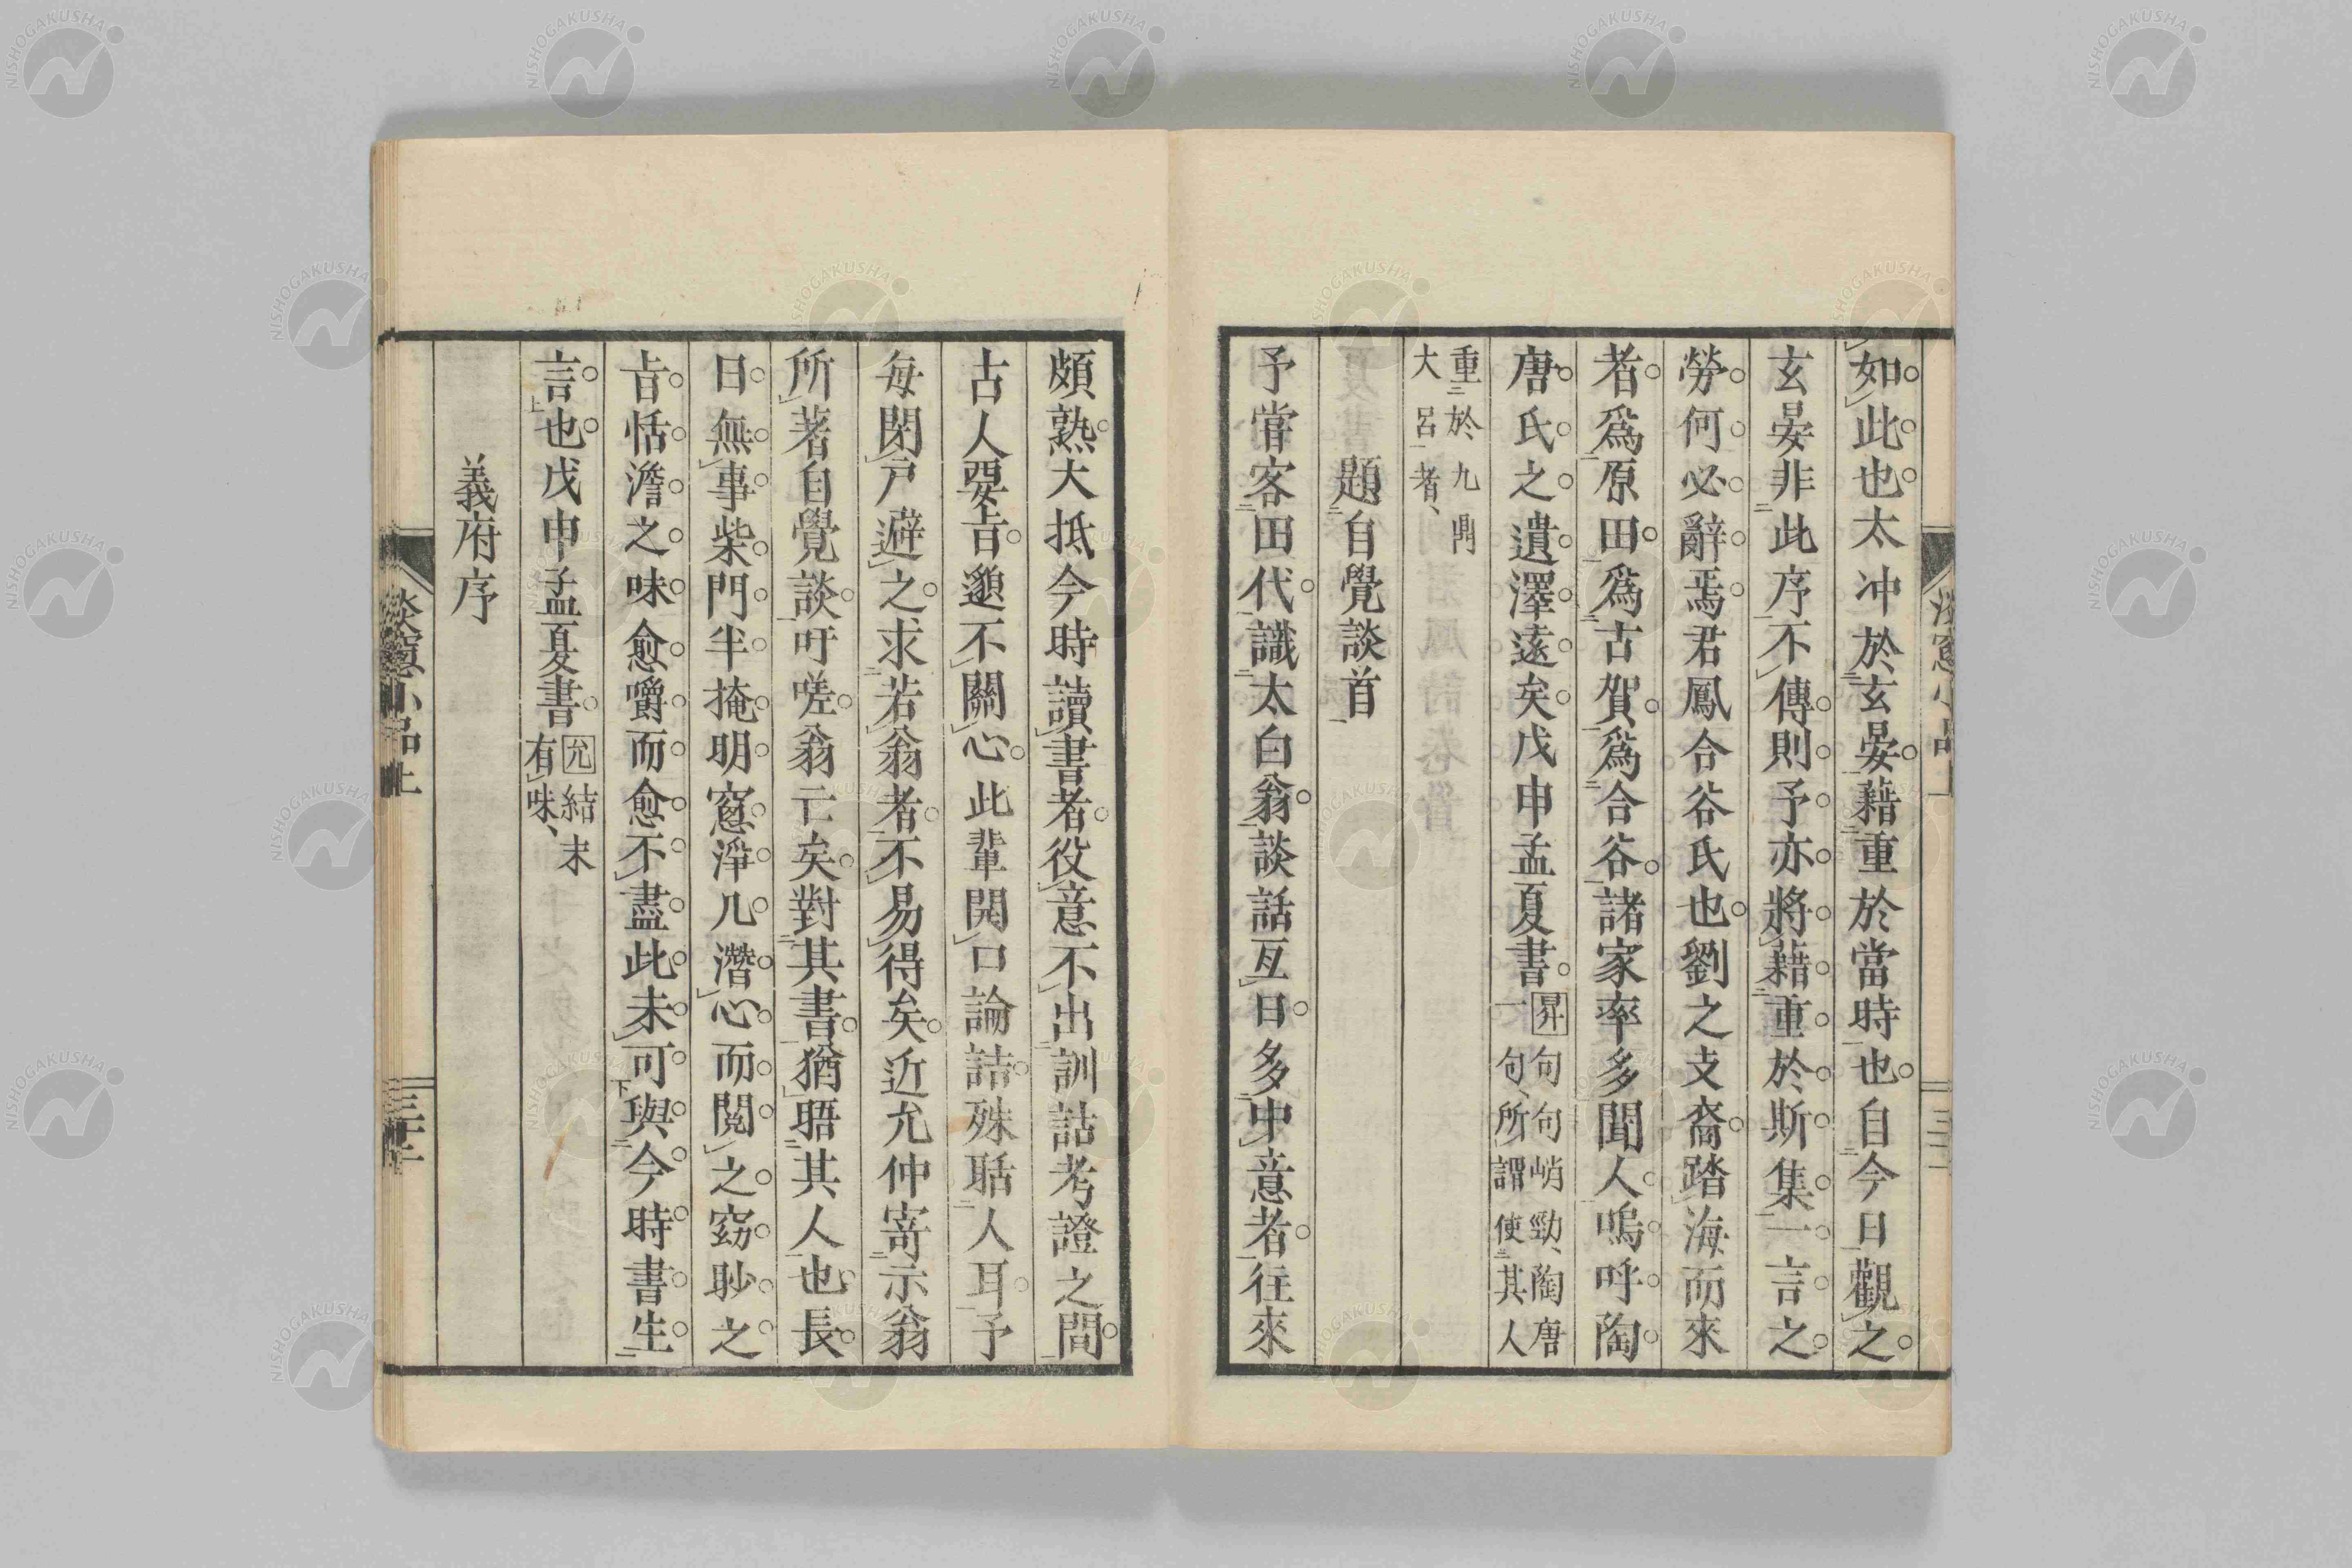 如此也太冲於玄晏藉重於當時也自今日觀之
玄晏非此序不傳則予亦將藉重於斯集一言之
勞何必辭焉君鳳合谷氏也劉之支裔踏海而來
者爲原田爲古賀爲合谷諸家率多聞人嗚呼陶
唐氏之遺澤遠矣戊申孟夏書 昇句句峭勁、陶唐
一句、所謂使其人
重於九鼎
大呂者、
題自覺談首
予嘗客田代識太白翁談話亙日多中意者往來
頗熟大抵今時讀書者役意不出訓詁考證之間
古人要旨邈不關心此輩開口論詰殊聒人耳予
每閉戶避之求若翁者不易得矣近允仲寄示翁
所著自覺談吁嗟翁亡矣對其書猶晤其人也長
日無事柴門半掩明窻淨几潛心而閱之窈眇之
旨恬澹之味愈嚼而愈不盡此未可與今時書生
言也戊申孟夏書 允結末
有味、
義府序
談窻小品上
三十二
NISHOGAKUSHA